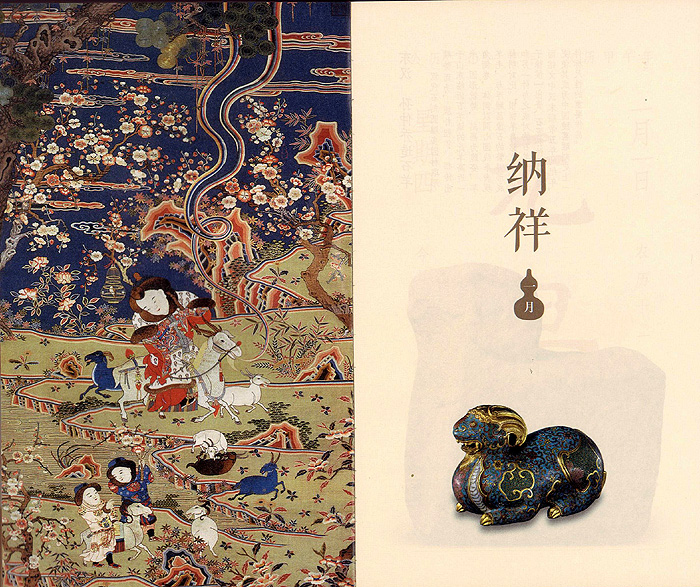 纳祥
一月